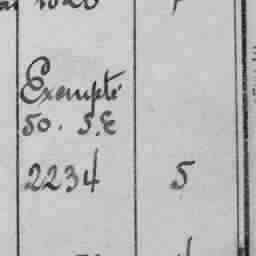 Exempté
50. S.E
2234 5